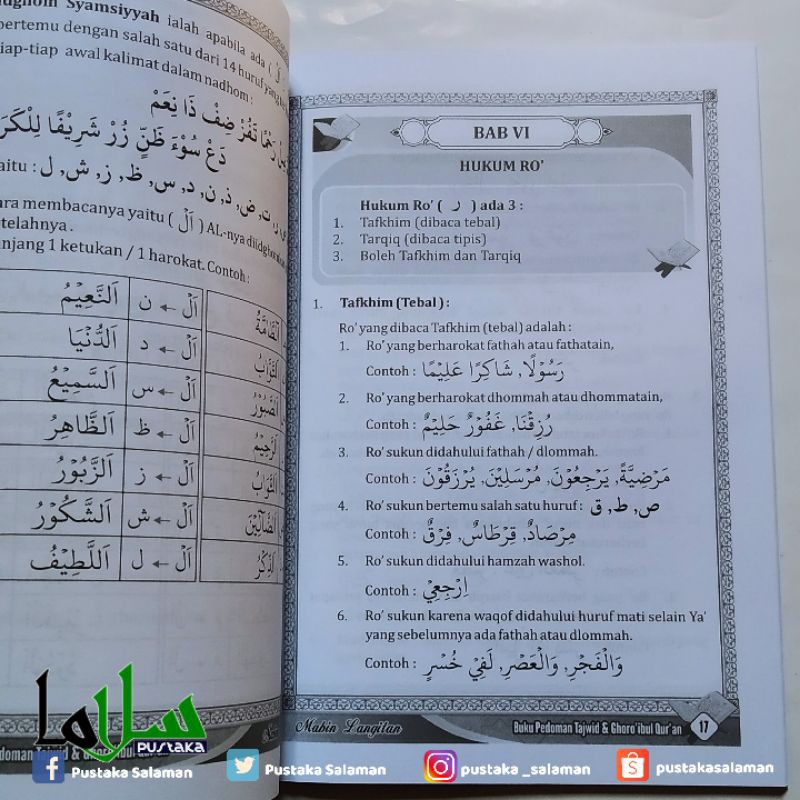 Syamsiyyah ialah apabila ada (
bertemu dengan salah satu dari 14 huruf yang
tiap-tiap awal kalimat dalam nadhom :
رَحْمًا تَفُزْ ضِفْ ذَا نِعَمْ
دَعْ سُوْءَ ظَنٍّ زُرْ شَرِيْفًا لِلْكَرَ
ت, ض, ذ, ن, د, س, ظ, ز, ش, ل
membacanya yaitu ( اَلْ ) AL-nya
1 ketukan / 1 harokat. Contoh :
اَلنَّعِيْمُ اَلْ ← ن
اَلدُّنْيَا اَلْ ← د
اَلسَّمِيْعُ اَلْ ← س
اَلظَّاهِرُ اَلْ ← ظ
اَلزَّبُوْرُ اَلْ ← ز
اَلشَّكُوْرُ اَلْ ← ش
اَللَّطِيْفُ اَلْ ← ل
BAB VI
HUKUM RO'
Hukum Ro' ( ر ) ada 3 :
1. Tafkhim (dibaca tebal)
2. Tarqiq (dibaca tipis)
3. Boleh Tafkhim dan Tarqiq
1. Tafkhim (Tebal) :
Ro' yang dibaca Tafkhim (tebal) adalah :
1. Ro' yang berharokat fathah atau fathatain,
Contoh : رَسُوْلًا, شَاكِرًا عَلِيْمًا
2. Ro' yang berharokat dhommah atau dhommatain,
Contoh : رُزِقْنَا, غَفُوْرٌ حَلِيْمٌ
3. Ro' sukun didahului fathah / dlommah.
Contoh : مَرْضِيَّةً, يَرْجِعُوْنَ, مُرْسَلِيْنَ, يُرْزَقُوْنَ
4. Ro' sukun bertemu salah satu huruf : ص, ط, ق
Contoh : مِرْصَادٌ, قِرْطَاسٌ, فِرْقٌ
5. Ro' sukun didahului hamzah washol.
Contoh : اِرْجِعِيْ
6. Ro' sukun karena waqof didahului huruf mati selain Ya'
yang sebelumnya ada fathah atau dlommah.
Contoh : وَالْفَجْرِ, وَالْعَصْرِ, لَفِيْ خُسْرٍ
Mabin Langitan
Buku Pedoman Tajwid & Ghoro'ibul Qur'an
17
سلاما
PUSTAKA
Pustaka Salaman
Pustaka Salaman
pustaka _salaman
pustakasalaman